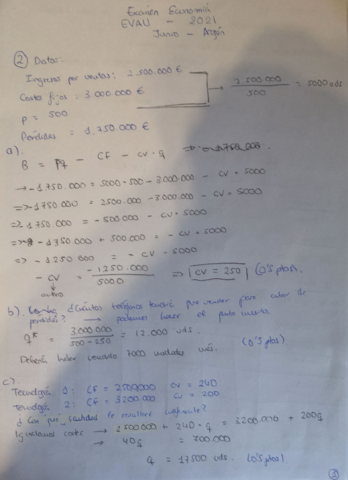 Examen Economía
EVAU - 2021
Junio - Aragón
② Datos:
Ingresos por ventas: 2.500.000 €
Costes fijos: 3.000.000 €
2.500.000 / 500 = 5000 uds
p = 500
Pérdidas = 1.750.000 €
a).
B = pq - CF - CV · q
→ -1.750.000 = 5000·500 - 3.000.000 - CV · 5000
=> -1.750.000 = 2.500.000 - 3.000.000 - CV · 5000
=> -1.750.000 = -500.000 - CV · 5000
=> -1.750.000 + 500.000 = - CV · 5000
=> -1.250.000 = - CV · 5000
- CV = -1.250.000 / 5000 => CV = 250 (0'5 ptos).
b). ¿Cuántos teléfonos tendrá que vender para cubrir la
pérdida? → podemos hacer el punto muerto
q* = 3.000.000 / 500 - 250 = 12.000 uds.
Deberá haber vendido 7000 unidades más. (0'5 ptos)
c).
Tecnología 1: CF = 2500.000 CV = 240
Tecnología 2: CF = 3200.000 CV = 200
¿Con qué cantidad le resultará indiferente?
Igualamos costes → 2.500.000 + 240 · q = 3200.000 + 200q
→ 40q = 700.000
q = 17500 uds. (0'5 ptos)